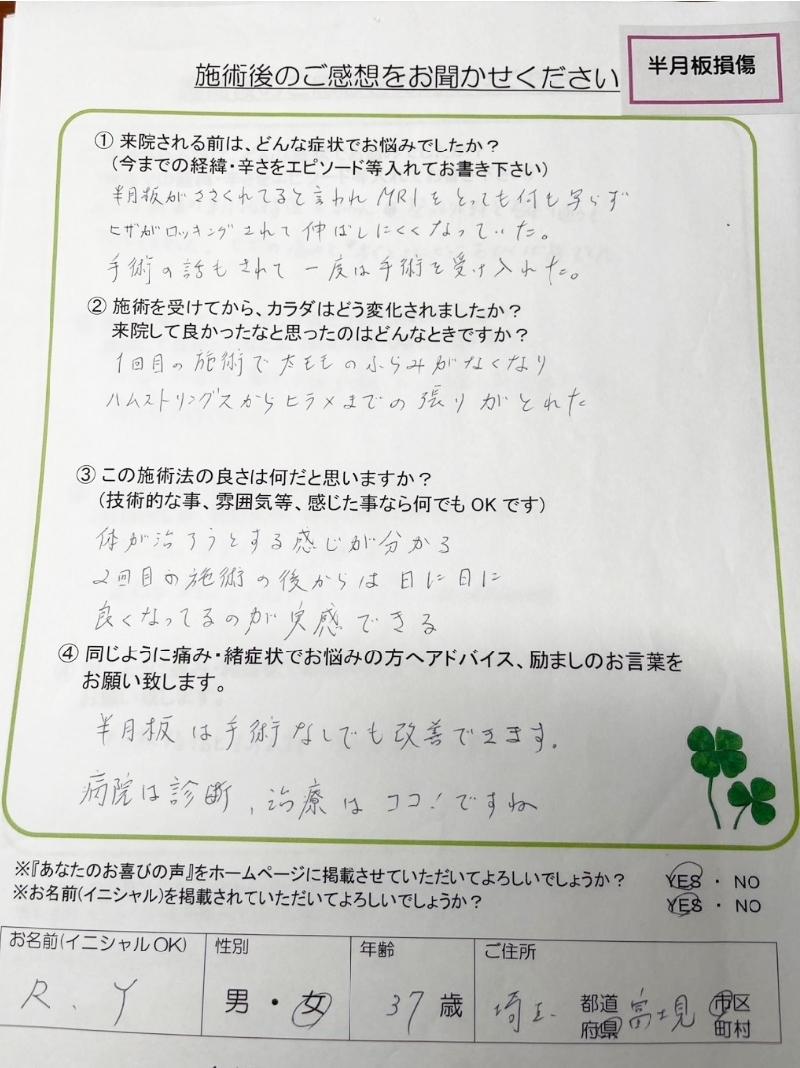 施術後のご感想をお聞かせください
半月板損傷
① 来院される前は、どんな症状でお悩みでしたか？
（今までの経緯・辛さをエピソード等入れてお書き下さい）
半月板がささくれてると言われ MRIをとっても何も写らず
ヒザがロッキングされて伸ばしにくくなっていた。
手術の話もされて一度は手術を受け入れた。
② 施術を受けてから、カラダはどう変化されましたか？
来院して良かったなと思ったのはどんなときですか？
1回目の施術で太ももの
がなくなり
ハムストリングスからヒラメまでの張りがとれた
③ この施術法の良さは何だと思いますか？
（技術的な事、雰囲気等、感じた事なら何でもOKです）
体が治ろうとする感じが分かる
2回目の施術の後からは日に日に
良くなってるのが実感できる
④ 同じように痛み・緒症状でお悩みの方へアドバイス、励ましのお言葉を
お願い致します。
半月板は手術なしでも改善できます。
病院は診断、治療はココ！ですね
※『あなたのお喜びの声』をホームページに掲載させていただいてよろしいでしょうか？ YES ・ NO
※お名前（イニシャル）を掲載されていただいてよろしいでしょうか？ YES ・ NO
お名前（イニシャルOK） 性別 年齢 ご住所
R、Y 男・女 37歳 埼玉 都道府県 富士見 市区町村